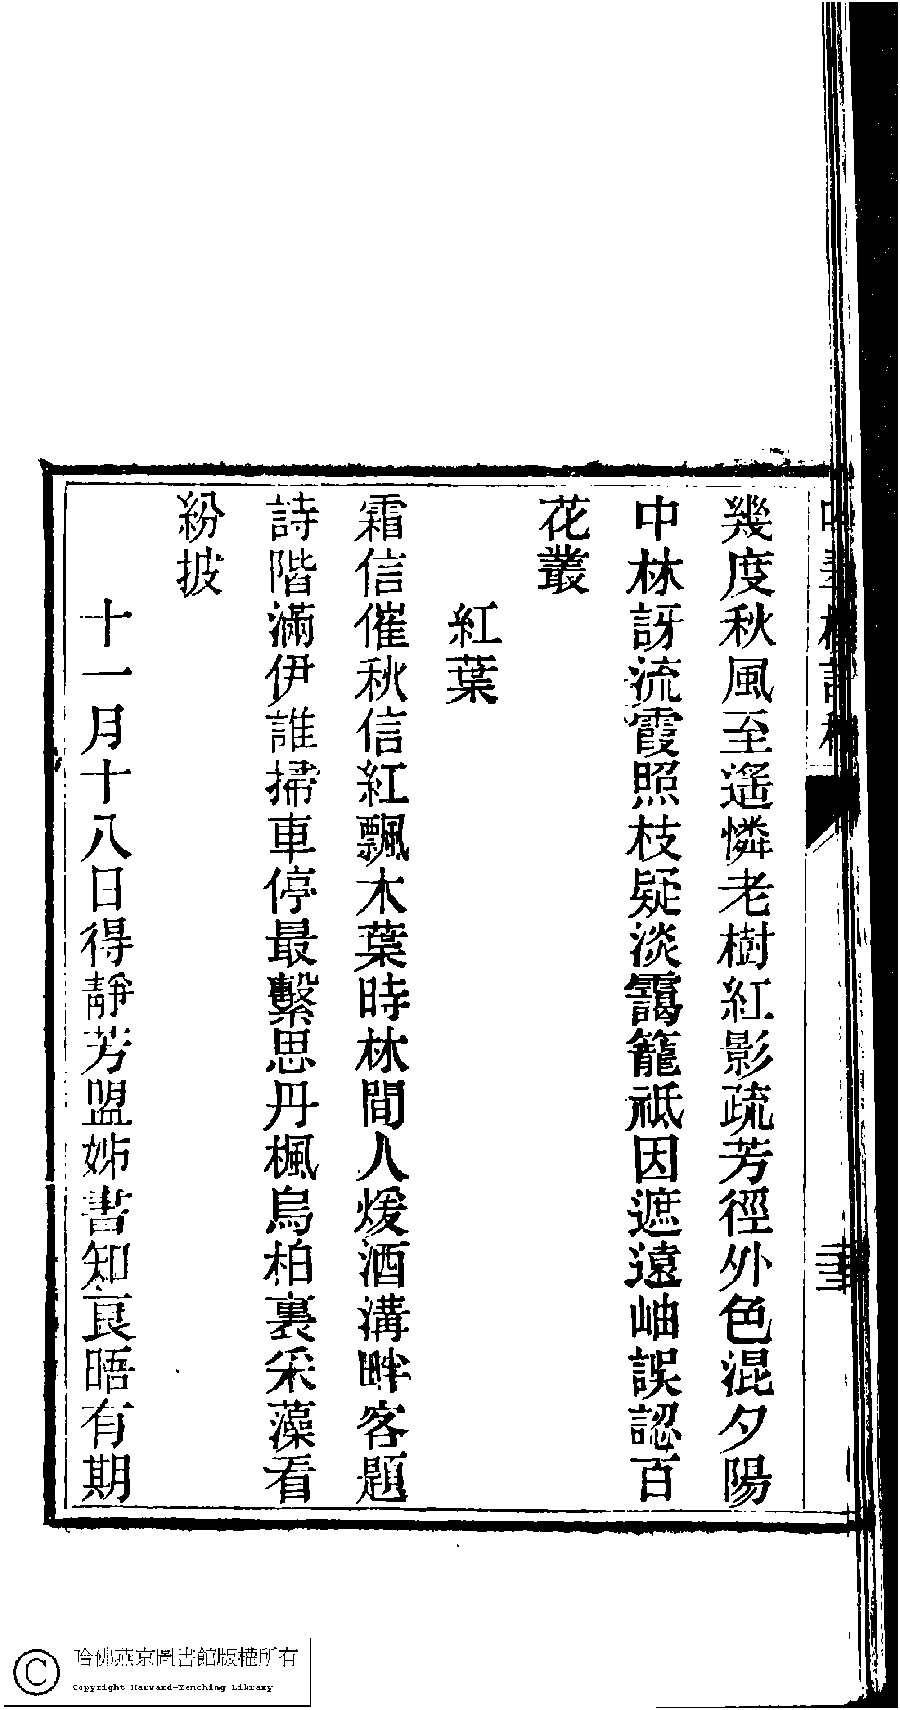 幾度秋風至遙憐老樹紅影疏芳徑外色混夕陽
中林訝流霞照枝疑淡靄籠祗因遮遠岫誤認百
花叢
紅葉
霜信催秋信紅飄木葉時林間人煖酒溝畔客題
詩階滿伊誰掃車停最繫思丹楓烏柏裏采藻看
紛披
十一月十八日得靜芳盟姊書知良晤有期
哈佛燕京圖書館版權所有
Copyright Harvard-Yenching Library